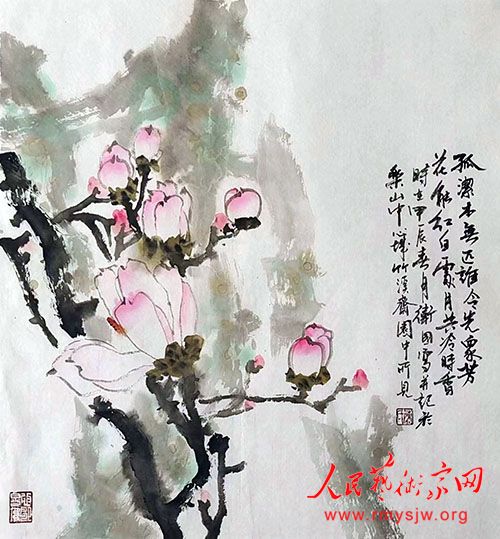 孤潔本無匹誰令先衆芳
花能紅白處月共冷時香
時在甲辰春月衛國寫并記於
樂山中心城竹溪齋園中所見
人民藝術家网
www.rmysjw.org